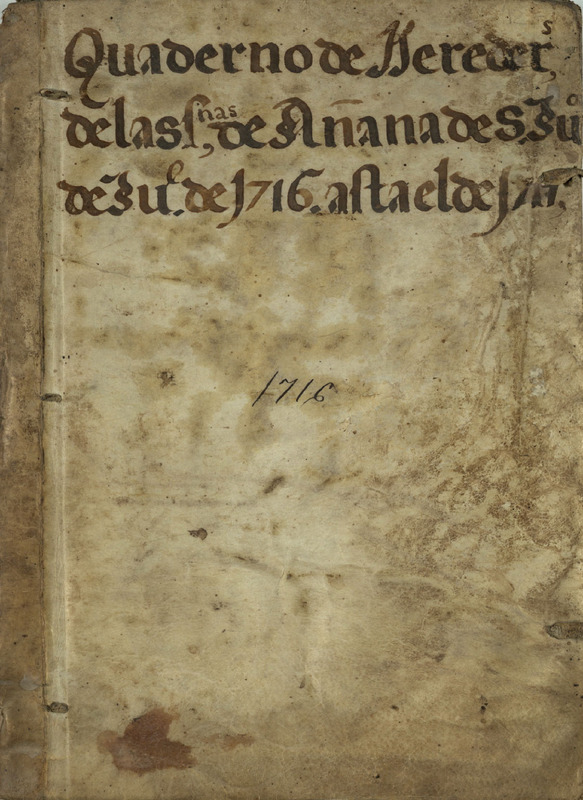 Quaderno de Hereder^s,
de las s^nas, de Añana de S. Ju^o
de Ju^o. de 1716. asta el de
1716